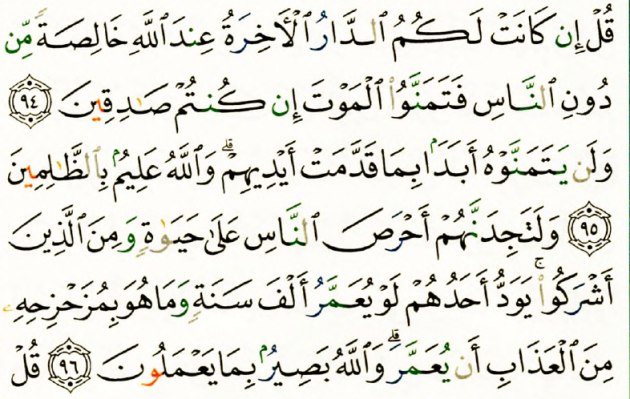 قُلْ إِن كَانَتْ لَكُمُ ٱلدَّارُ ٱلْأَخِرَةُ عِندَ ٱللَّهِ خَالِصَةً مِّن
دُونِ ٱلنَّاسِ فَتَمَنَّوُا۟ ٱلْمَوْتَ إِن كُنتُمْ صَـٰدِقِينَ ٩٤
وَلَن يَتَمَنَّوْهُ أَبَدًۢا بِمَا قَدَّمَتْ أَيْدِيهِمْ ۗ وَٱللَّهُ عَلِيمٌۢ بِٱلظَّـٰلِمِينَ
٩٥ وَلَتَجِدَنَّهُمْ أَحْرَصَ ٱلنَّاسِ عَلَىٰ حَيَوٰةٍ وَمِنَ ٱلَّذِينَ
أَشْرَكُوا۟ ۚ يَوَدُّ أَحَدُهُمْ لَوْ يُعَمَّرُ أَلْفَ سَنَةٍ وَمَا هُوَ بِمُزَحْزِحِهِۦ
مِنَ ٱلْعَذَابِ أَن يُعَمَّرَ ۗ وَٱللَّهُ بَصِيرٌۢ بِمَا يَعْمَلُونَ ٩٦ قُلْ